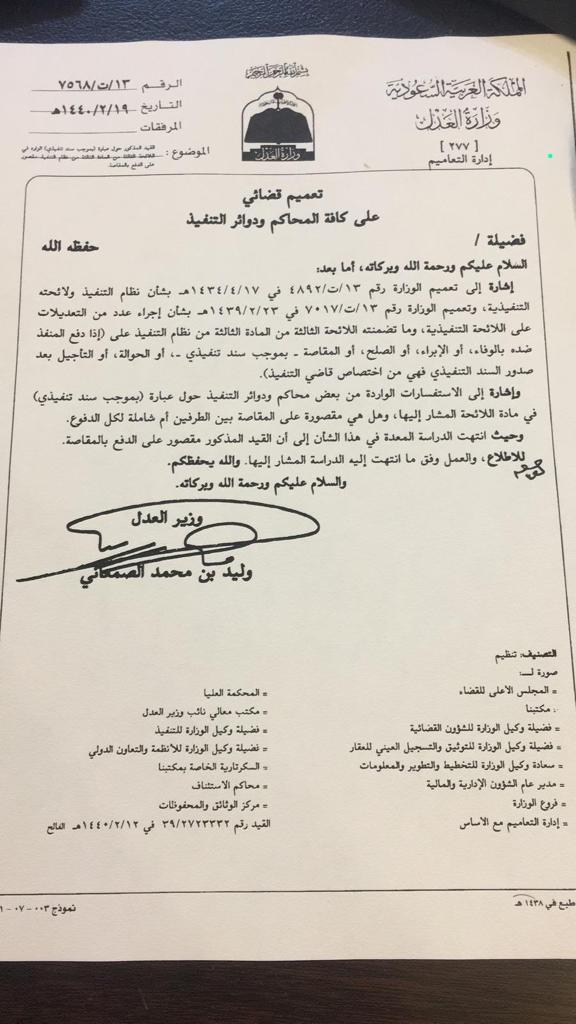 المملكة العربية السعودية
وزارة العدل
[ ٢٧٧ ]
إدارة التعاميم
بسم الله الرحمن الرحيم
وزارة العدل
الرقم ١٣/ت/٧٥٦٨
التاريخ ١٤٤٠/٢/١٩هـ
المرفقات
الموضوع : القيد المذكور حول عبارة (بموجب سند تنفيذي) الوارد في
اللائحة الثالثة من المادة الثالثة من نظام التنفيذ مقصور
على الدفع بالمقاصة.
تعميم قضائي
على كافة المحاكم ودوائر التنفيذ
فضيلة / حفظه الله
السلام عليكم ورحمة الله وبركاته، أما بعد:
إشارة إلى تعميم الوزارة رقم ١٣/ت/٤٨٩٢ في ١٤٣٤/٤/١٧هـ بشأن نظام التنفيذ ولائحته
التنفيذية، وتعميم الوزارة رقم ١٣/ت/٧٠١٧ في ١٤٣٩/٢/٢٣هـ بشأن إجراء عدد من التعديلات
على اللائحة التنفيذية، وما تضمنته اللائحة الثالثة من المادة الثالثة من نظام التنفيذ على (إذا دفع المنفذ
ضده بالوفاء، أو الإبراء، أو الصلح، أو المقاصة ـ بموجب سند تنفيذي ـ، أو الحوالة، أو التأجيل بعد
صدور السند التنفيذي فهي من اختصاص قاضي التنفيذ).
وإشارة إلى الاستفسارات الواردة من بعض محاكم ودوائر التنفيذ حول عبارة (بموجب سند تنفيذي)
في مادة اللائحة المشار إليها، وهل هي مقصورة على المقاصة بين الطرفين أم شاملة لكل الدفوع.
وحيث انتهت الدراسة المعدة في هذا الشأن إلى أن القيد المذكور مقصور على الدفع بالمقاصة.
للاطلاع، والعمل وفق ما انتهت إليه الدراسة المشار إليها. والله يحفظكم.
والسلام عليكم ورحمة الله وبركاته.
وزير العدل
وليد بن محمد الصمعاني
التصنيف: تنظيم
صورة لـ:
= المجلس الأعلى للقضاء
: مكتبنا
= فضيلة وكيل الوزارة للشؤون القضائية
= فضيلة وكيل الوزارة للتوثيق والتسجيل العيني للعقار
= سعادة وكيل الوزارة للتخطيط والتطوير والمعلومات
= مدير عام الشؤون الإدارية والمالية
= فروع الوزارة
= إدارة التعاميم مع الأساس
= المحكمة العليا
= مكتب معالي نائب وزير العدل
= فضيلة وكيل الوزارة للتنفيذ
= فضيلة وكيل الوزارة للأنظمة والتعاون الدولي
= السكرتارية الخاصة بمكتبنا
= محاكم الاستئناف
= مركز الوثائق والمحفوظات
القيد رقم ٣٩/٢٧٢٣٣٣٢ في ١٤٤٠/٢/١٢هـ الفالح
طبع في ١٤٣٨ هـ
نموذج ٠٠٣ - ٠٧ - ١